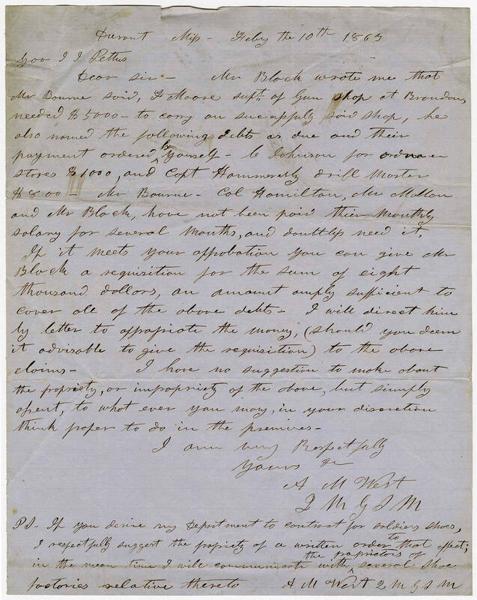 Durant Miss - Feby the 10th 1863
Gov J J Pettus
Dear sir - Mr Black wrote me that
Mr Bourne said, F Moore supt. of Gun shop at Brandon,
needed $5000 - to carry on successfully said shop, he
also named the following debts as due and their
payment ordered by yourself - C Johnson for ordnance
stores $1000, and Capt Hammerly drill Master
$800 - Mr Bourne - Col Hamilton, Mr Mellon
and Mr Black, have not been paid their Monthly
salary for several Months, and doubtless need it.
If it meets your approbation you can give Mr
Black a requisition for the sum of eight
thousand dollars, an amount amply sufficient to
cover all of the above debts - I will direct him
by letter to appropriate the money, (should you deem
it advisable to give the requisition) to the above
claims - I have no suggestion to make about
the propriety, or impropriety of the above, but simply
assent, to what ever you may, in your discretion
think proper to do in the premises -
I am very Respectfully
Yours &c
A M West
Q M G S M
PS - If you desire my Department to contract for soldiers shoes,
I respectfully suggest the propriety of a written order to that effect;
in the mean time I will communicate with the proprietors of several shoe
factories relative thereto A M West Q M G S M